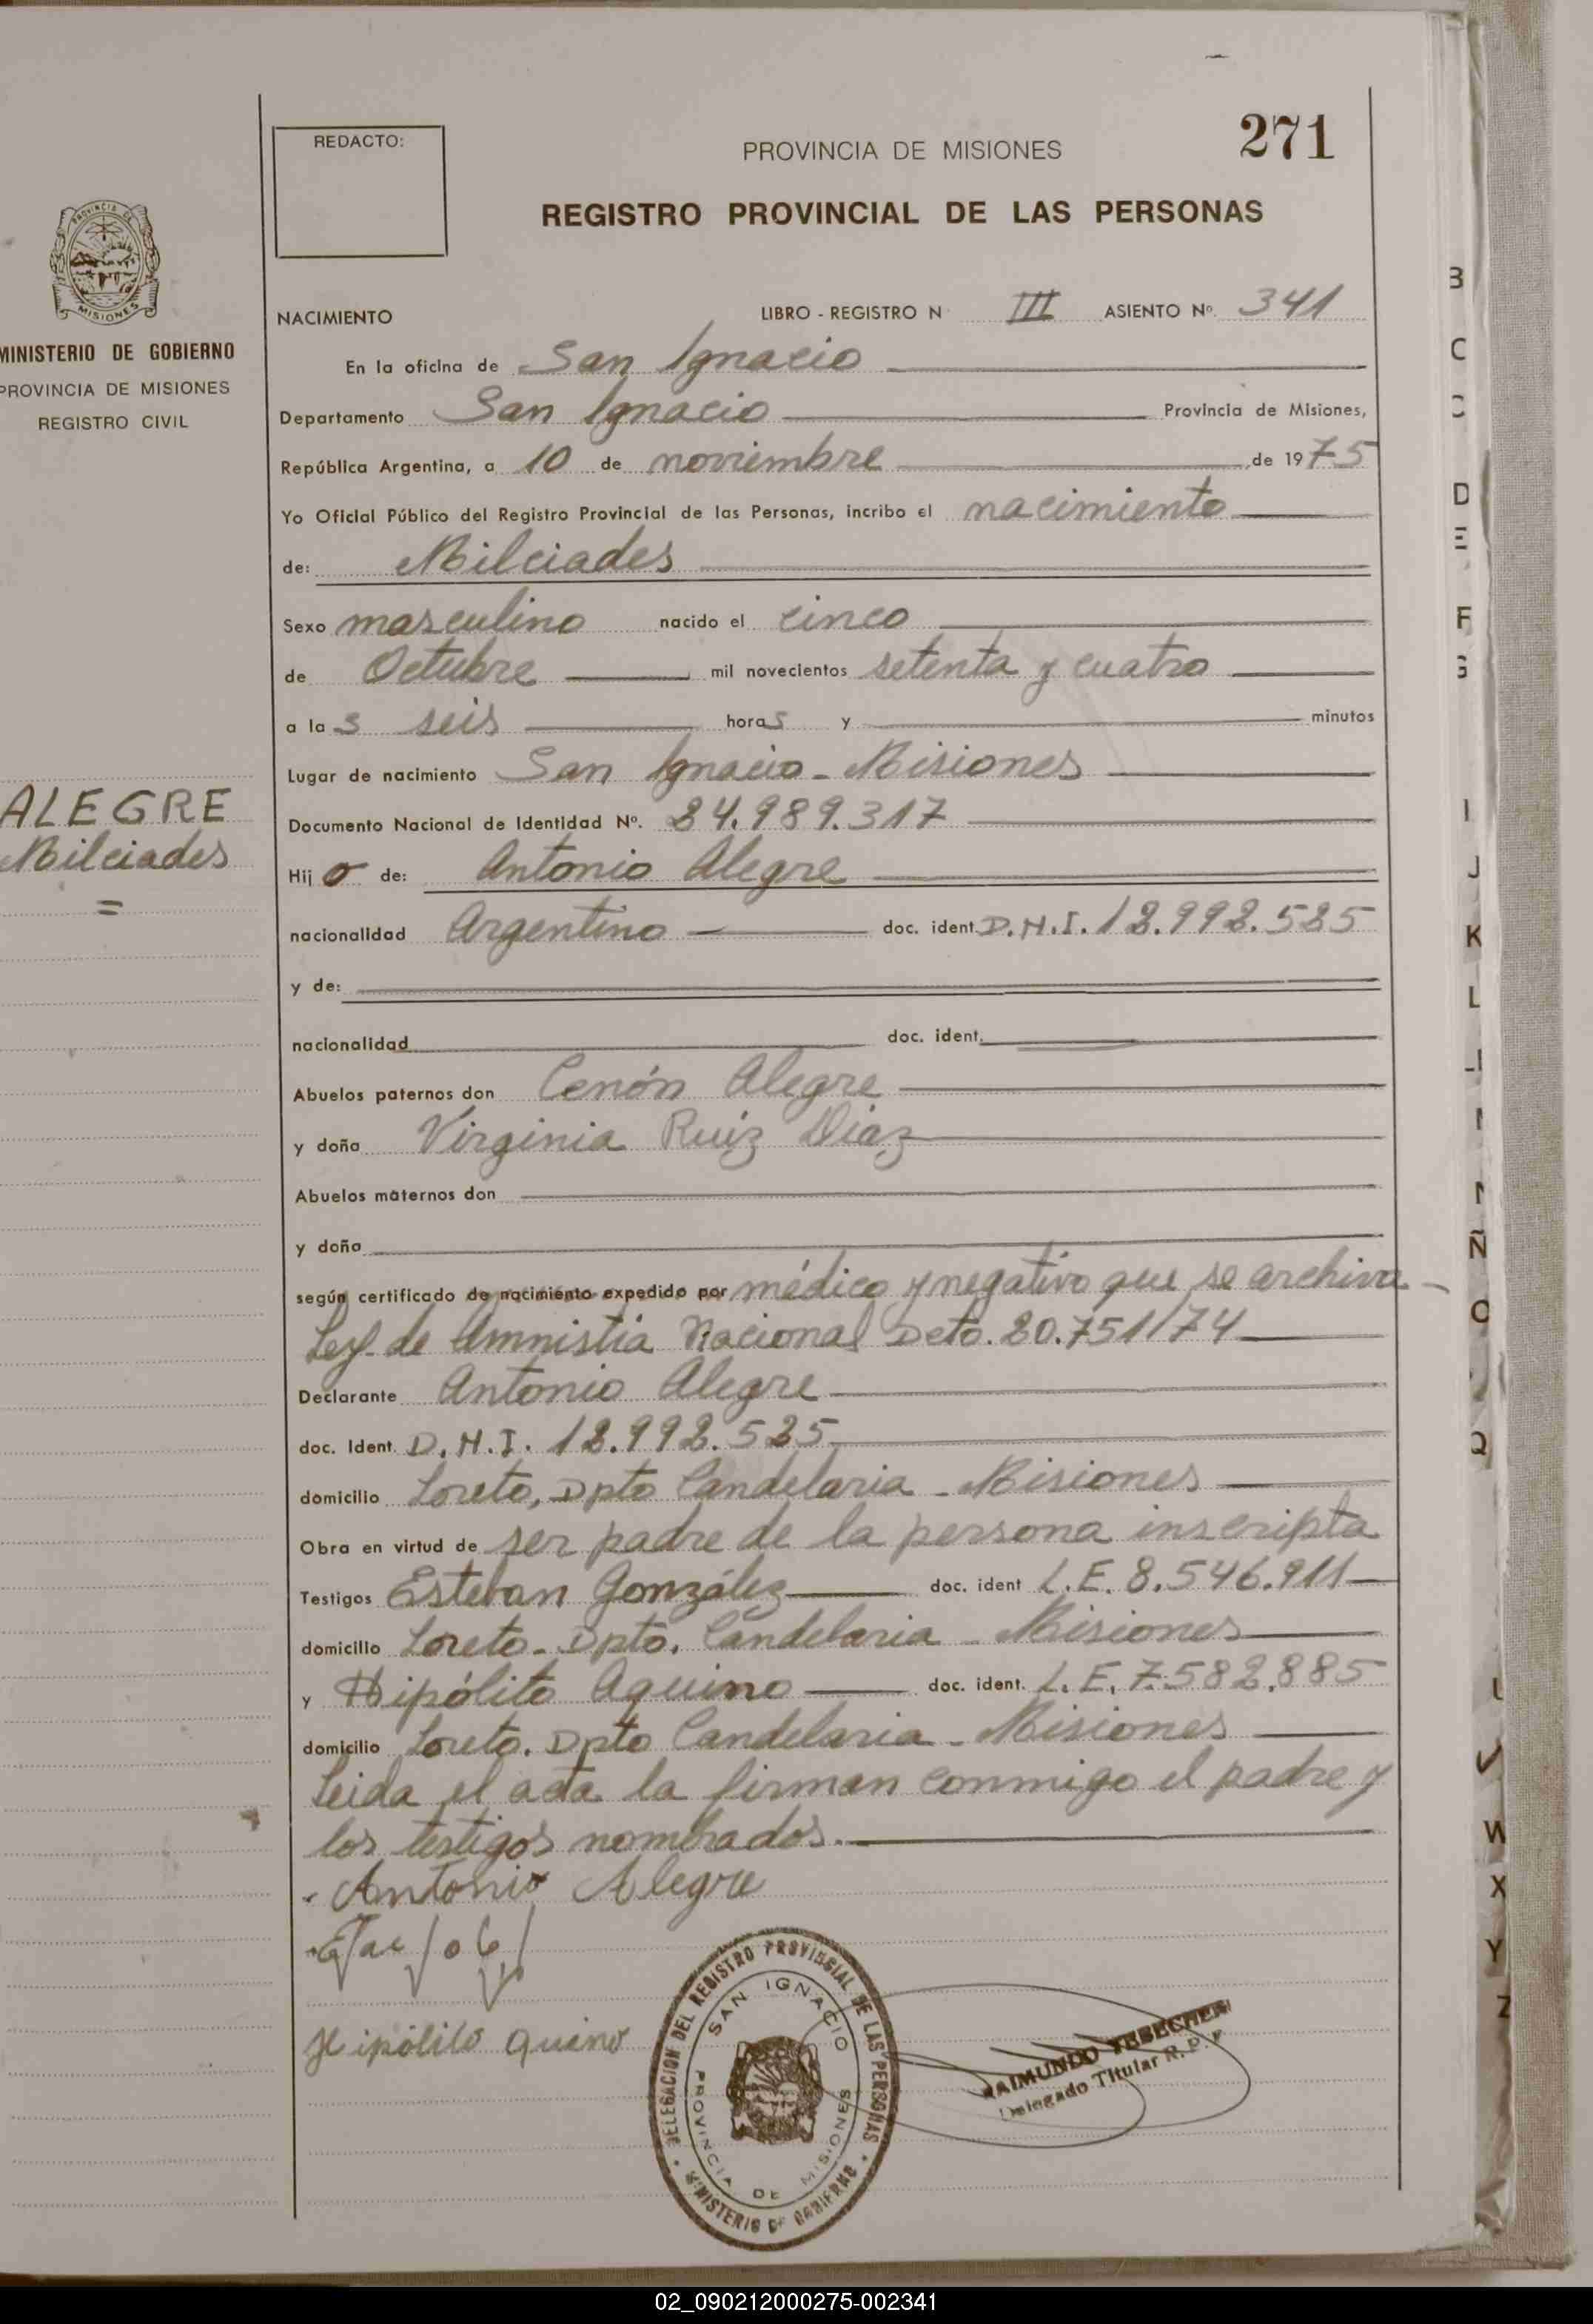 REDACTO:
PROVINCIA DE MISIONES
271
REGISTRO PROVINCIAL DE LAS PERSONAS
PROVINCIA DE
MISIONES
MINISTERIO DE GOBIERNO
PROVINCIA DE MISIONES
REGISTRO CIVIL
ALEGRE
Milciades
=
NACIMIENTO LIBRO - REGISTRO N III ASIENTO Nº. 341
En la oficina de San Ignacio
Departamento San Ignacio Provincia de Misiones,
República Argentina, a 10 de noviembre de 1975
Yo Oficial Público del Registro Provincial de las Personas, incribo el nacimiento
de: Milciades
Sexo masculino nacido el cinco
de Octubre mil novecientos setenta y cuatro
a las seis horas y minutos
Lugar de nacimiento San Ignacio - Misiones
Documento Nacional de Identidad Nº. 24.989.317
Hijo de: Antonio Alegre
nacionalidad Argentino doc. ident. D.N.I. 12.992.525
y de:
nacionalidad doc. ident.
Abuelos paternos don Cenón Alegre
y doña Virginia Ruiz Diaz
Abuelos maternos don
y doña
según certificado de nacimiento expedido por médico y negativo que se archiva -
Ley de Amnistia Nacional Dcto. 20.751/74
Declarante Antonio Alegre
doc. Ident. D.N.I. 12.992.525
domicilio Loreto, Dpto Candelaria - Misiones
Obra en virtud de ser padre de la persona inscripta
Testigos Esteban González doc. ident L.E. 8.546.911
domicilio Loreto - Dpto. Candelaria - Misiones
y Hipólito Aquino doc. ident. L.E. 7.582.885
domicilio Loreto. Dpto Candelaria - Misiones
Leida el acta la firman conmigo el padre y
los testigos nombrados.
Antonio Alegre
Hipólito Quino
DELEGACION DEL REGISTRO PROVINCIAL DE LAS PERSONAS
SAN IGNACIO
PROVINCIA DE MISIONES
MINISTERIO DE GOBIERNO
RAIMUNDO
Delegado Titular R. P. P.
B
C
D
E
F
G
I
J
K
L
N
Ñ
O
Q
V
W
X
Y
Z
02_090212000275-002341